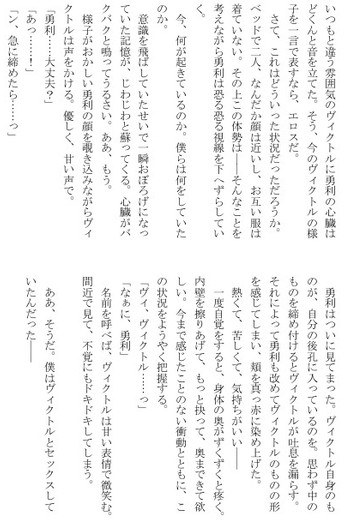 いつもと違う雰囲気のヴィクトルに勇利の心臓は
どくんと音を立てた。そう、今のヴィクトルの様
子を一言で表すなら、エロスだ。
さて、これはどういった状況だっただろうか。
ベッドで二人、なんだか顔は近いし、お互い服は
着ていない。その上この体勢は――そんなことを
考えながら勇利は恐る恐る視線を下へずらしてい
く。
今、何が起きているのか。僕らは何をしていた
のか。
意識を飛ばしていたせいで一瞬おぼろげになっ
ていた記憶が、じわじわと蘇ってくる。心臓がバ
クバクと鳴ってうるさい。ああ、もう。
様子がおかしい勇利の顔を覗き込みながらヴィ
クトルは声をかける。優しく、甘い声で。
「勇利……大丈夫?」
「あっ……!」
「ン、急に締めたら……っ」
勇利はついに見てまった。ヴィクトル自身のも
のが、自分の後孔に入っているのを。思わず中の
ものを締め付けるとヴィクトルが吐息を漏らす。
それによって勇利も改めてヴィクトルのものの形
を感じてしまい、頬を真っ赤に染め上げた。
熱くて、苦しくて、気持ちがいい――
一度自覚をすると、身体の奥がずくずくと疼く。
内壁を擦りあげて、もっと抉って、奥まできて欲
しい。今まで感じたことのない衝動とともに、こ
の状況をようやく把握する。
「ヴィ、ヴィクトル……っ」
「なぁに、勇利」
名前を呼べば、ヴィクトルは甘い表情で微笑む。
間近で見て、不覚にもドキドキしてしまう。
ああ、そうだ。僕はヴィクトルとセックスして
いたんだった――